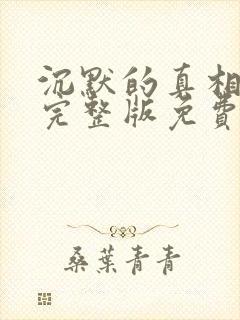 沉默的真相
完整版免費
桑葉青青